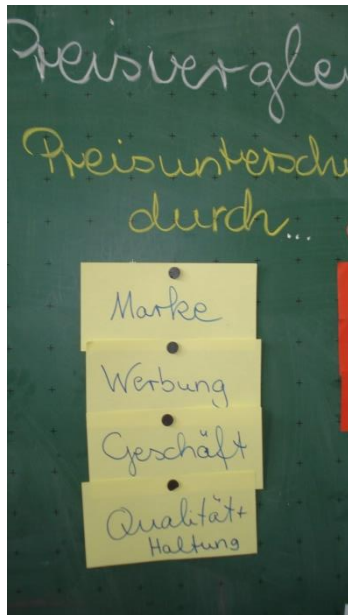 Preisvergle
Preisunterschi
durch...
Marke
Werbung
Geschäft
Qualität+
Haltung